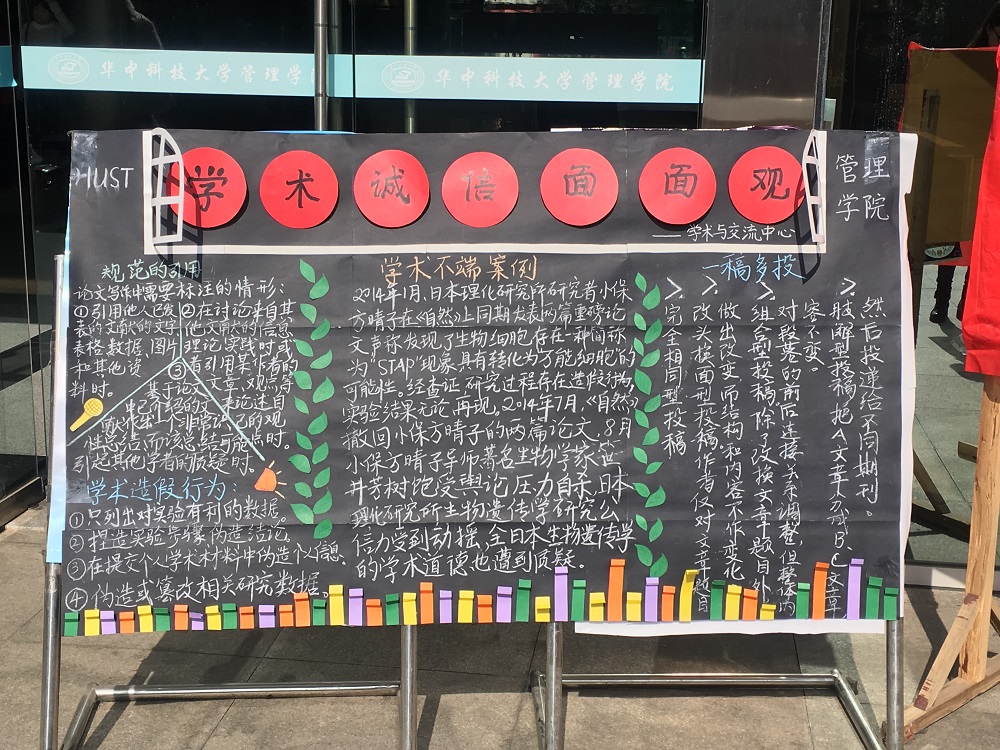 华中科技大学管理学院
华中科技大学管理学院
HUST
学术诚信面面观
管理
学院
——学术与交流中心
规范的引用
论文写作中需要标注的情形：
①引用他人已发
表的文献的文字
表格、数据、图片
和其他资
料时。
②在讨论来自其
他文献的信息
理论、实践时或
③若引用某作者的
文章、观点等
基于论
引起其他学者的质疑时.
学术造假行为：
①只列出对实验有利的数据。
②捏造实验步骤、伪造结论。
③在提交个人学术材料中伪造个人信息.
④伪造或篡改相关研究数据。
学术不端案例
2014年1月、日本理化研究所研究者小保
方晴子在《自然》上同期发表两篇重磅论
文声称发现了生物细胞存在一种简称
为"STAP"现象具有转化为"万能细胞"的
可能性。经查证,研究过程存在造假行为,
实验结果无论再现。2014年7月，《自然》
撤回小保方晴子的两篇论文。8月
小保方晴子导师著名生物学家笹
井芳树饱受舆论压力自杀。日本
理化研究所生物遗传学研究公
信力受到动摇、全日本生物遗传学
的学术道德也遭到质疑。
一稿多投
>完全相同型投稿
>改头换面型投稿、作者仅对文章题目
做出改变而结构和内容不作变化
>组合型投稿、除了改换文章题目外、
对段落的前后连接关系调整、但整体内
容不变。
>肢解型投稿、把A文章分成B、C文章
然后投递给不同期刊.